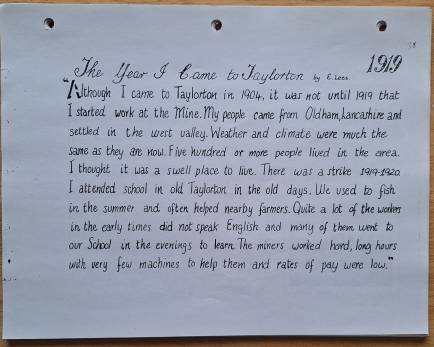 38
The Year I Came to Taylorton by E. Lees. 1919
"Although I came to Taylorton in 1904, it was not until 1919 that
I started work at the Mine. My people came from Oldham, Lancashire and
settled in the west valley. Weather and climate were much the
same as they are now. Five hundred or more people lived in the area.
I thought it was a swell place to live. There was a strike 1919-1920.
I attended school in old Taylorton in the old days. We used to fish
in the summer and often helped nearby farmers. Quite a lot of the workers
in the early times did not speak English and many of them went to
our School in the evenings to learn. The miners worked hard, long hours
with very few machines to help them and rates of pay were low."